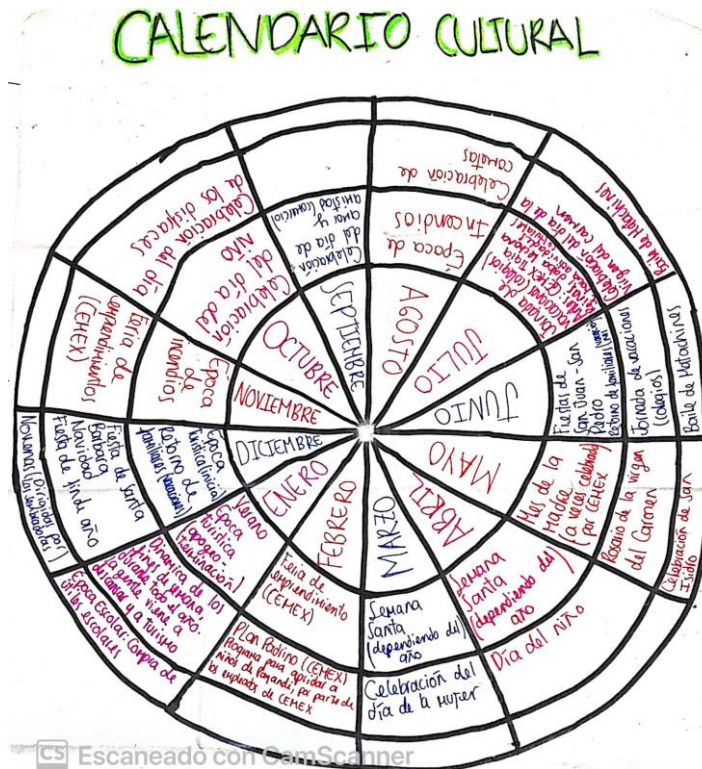 CALENDARIO CULTURAL
ENERO
Verano
Época
turística
(apogeo y
terminación)
Dinámica de los
fines de semana
durante todo el año.
la gente viene a
descansar y a turismo
Época Escolar: Compra de
útiles escolares
FEBRERO
Feria de
emprendimiento
(CEMEX)
Plan Padrino (CEMEX)
Programa para apadrinar a
niños de Payandé, por parte de
los empleados de CEMEX
MARZO
Semana
Santa
(dependiendo del)
año
Celebración del
día de la mujer
ABRIL
Semana
Santa
(dependiendo del)
año
Día del niño
MAYO
Mes de la
Madre
(a veces celebrado)
por CEMEX
Rosario de la virgen
del Carmen
Celebración de San
Isidro
JUNIO
Fiestas de
San Juan - San
Pedro
retorno de familiares
Jornada de vacaciones
(colegios)
Baile de Matachines
JULIO
Jornada de
vacaciones (colegios)
Celebración del día de la
virgen del carmen
Baile de Matachines
AGOSTO
Época de
Incendios
Celebración de
cometas
SEPTIEMBRE
Celebración
del día de
amor y
amistad (comercio)
OCTUBRE
Celebración
del día del
niño
Celebración del día
de los disfraces
NOVIEMBRE
Época
de
incendios
Feria de
emprendimientos
(CEMEX)
DICIEMBRE
Época
turística (inicia)
Retorno de
familiares (vacaciones)
Fiesta de santa
Bárbara
Navidad
Fiesta de fin de año
Novenas (Dirigidas por)
las sembradoras
CS Escaneado con CamScanner